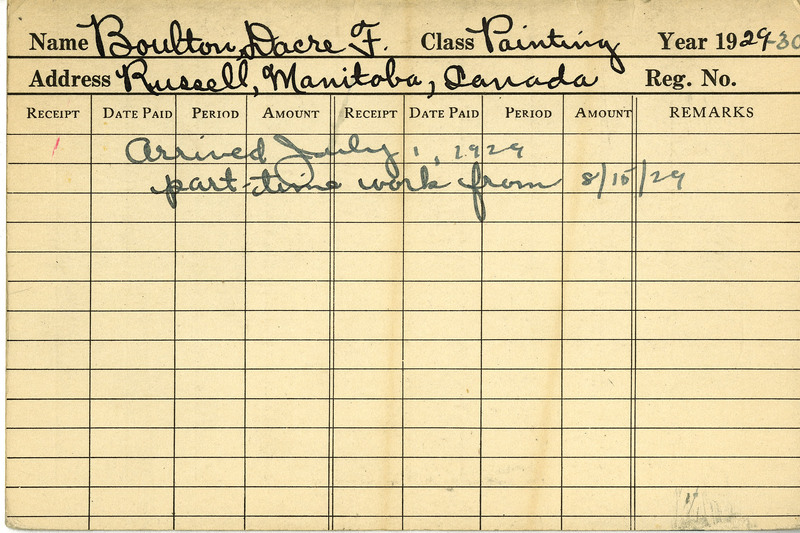 Name Boulton, Dacre F. Class Painting Year 1929-30
Address Russell, Manitoba, Canada Reg. No.
RECEIPT DATE PAID PERIOD AMOUNT RECEIPT DATE PAID PERIOD AMOUNT REMARKS
1 Arrived July 1, 1929
part-time work from 8/15/29